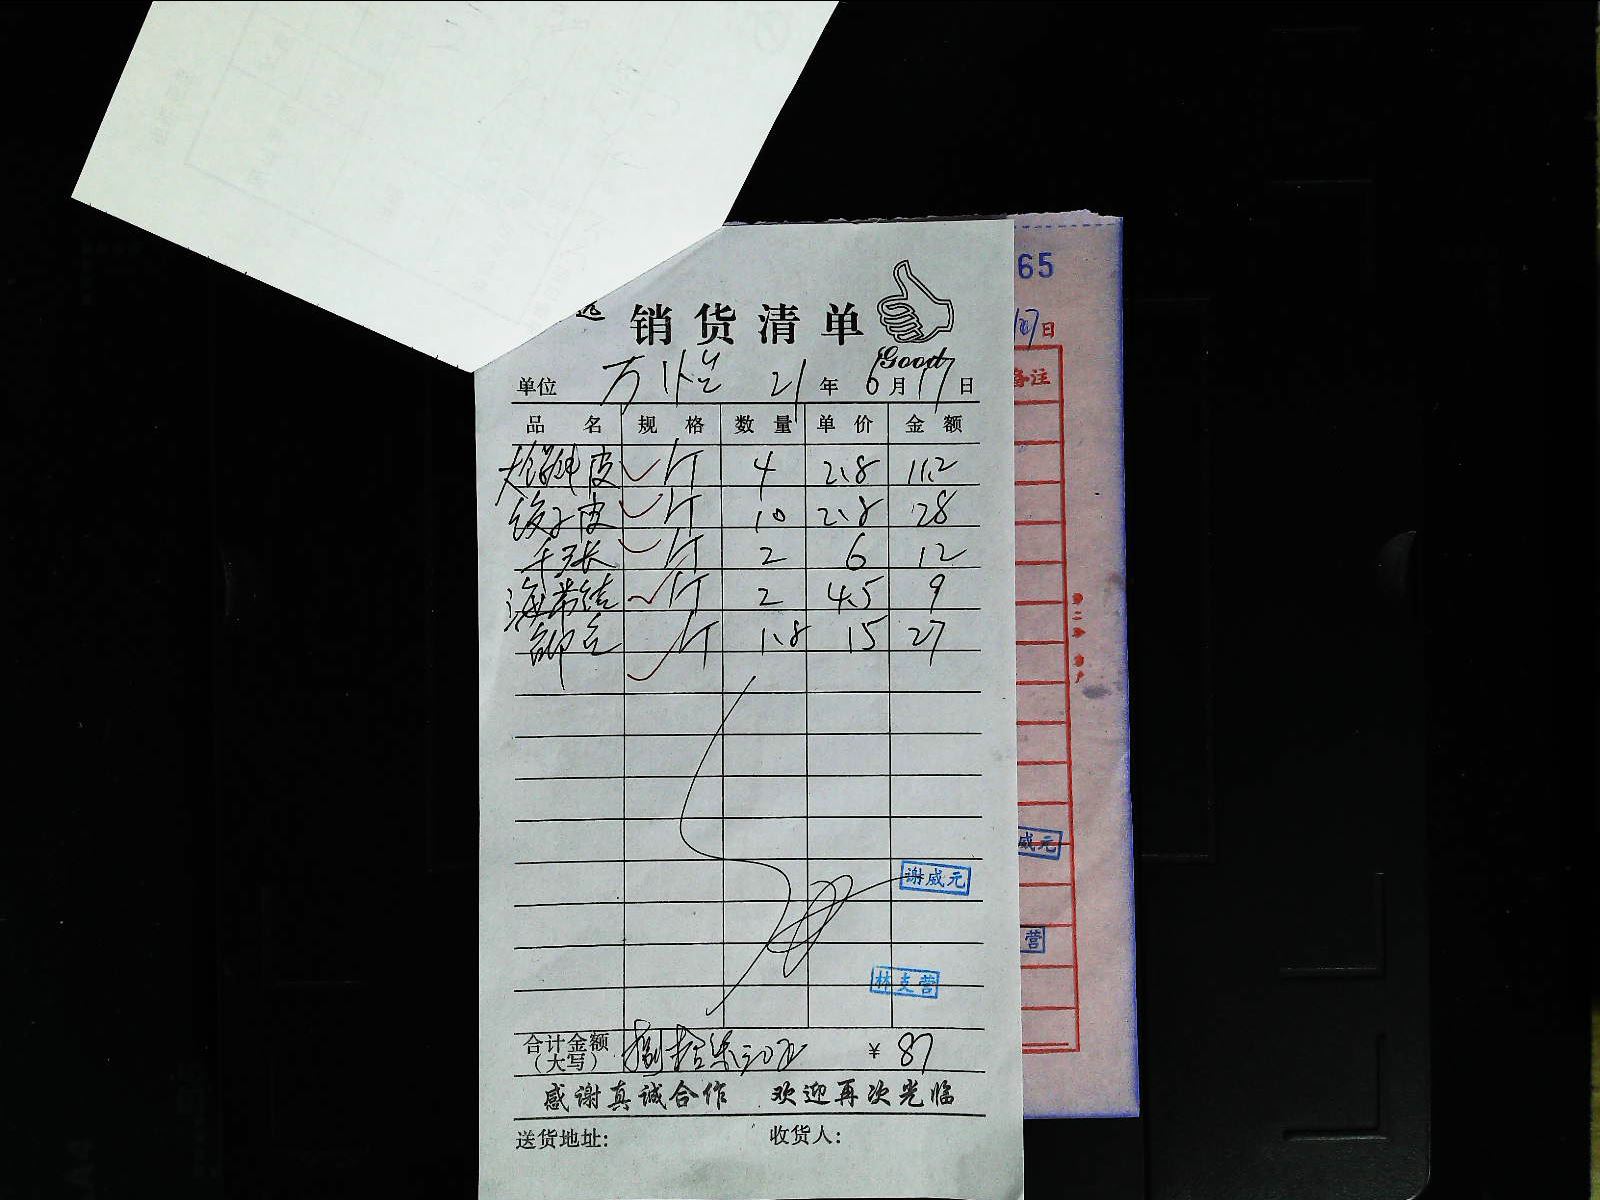 65
销货清单
Good
单位 万 21年6月17日
日
备注
品名 规格 数量 单价 金额
皮 斤 4 2.8 11.2
饺子皮 斤 10 2.8 28
千张 斤 2 6 12
海带结 斤 2 4.5 9
斤 1.8 15 27
谢威元
威元
营
林支营
合计金额(大写) 捌拾柒元 ¥ 87
感谢真诚合作 欢迎再次光临
送货地址: 收货人: